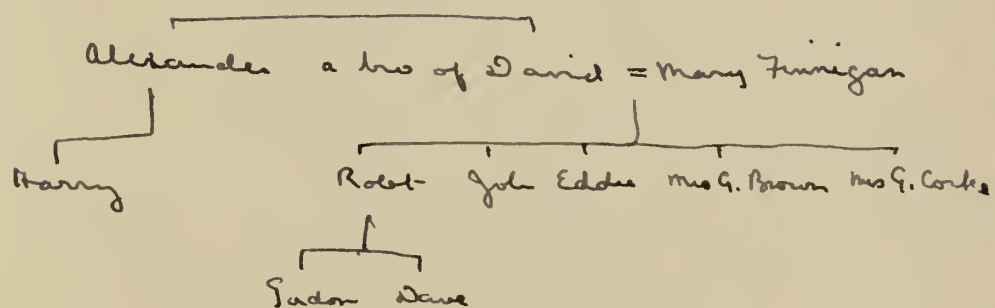 Alexander a bro of David = Mary Finnigan
Harry Robt John Eddie Mrs G. Brown Mrs G. Corke
Gordon Dave